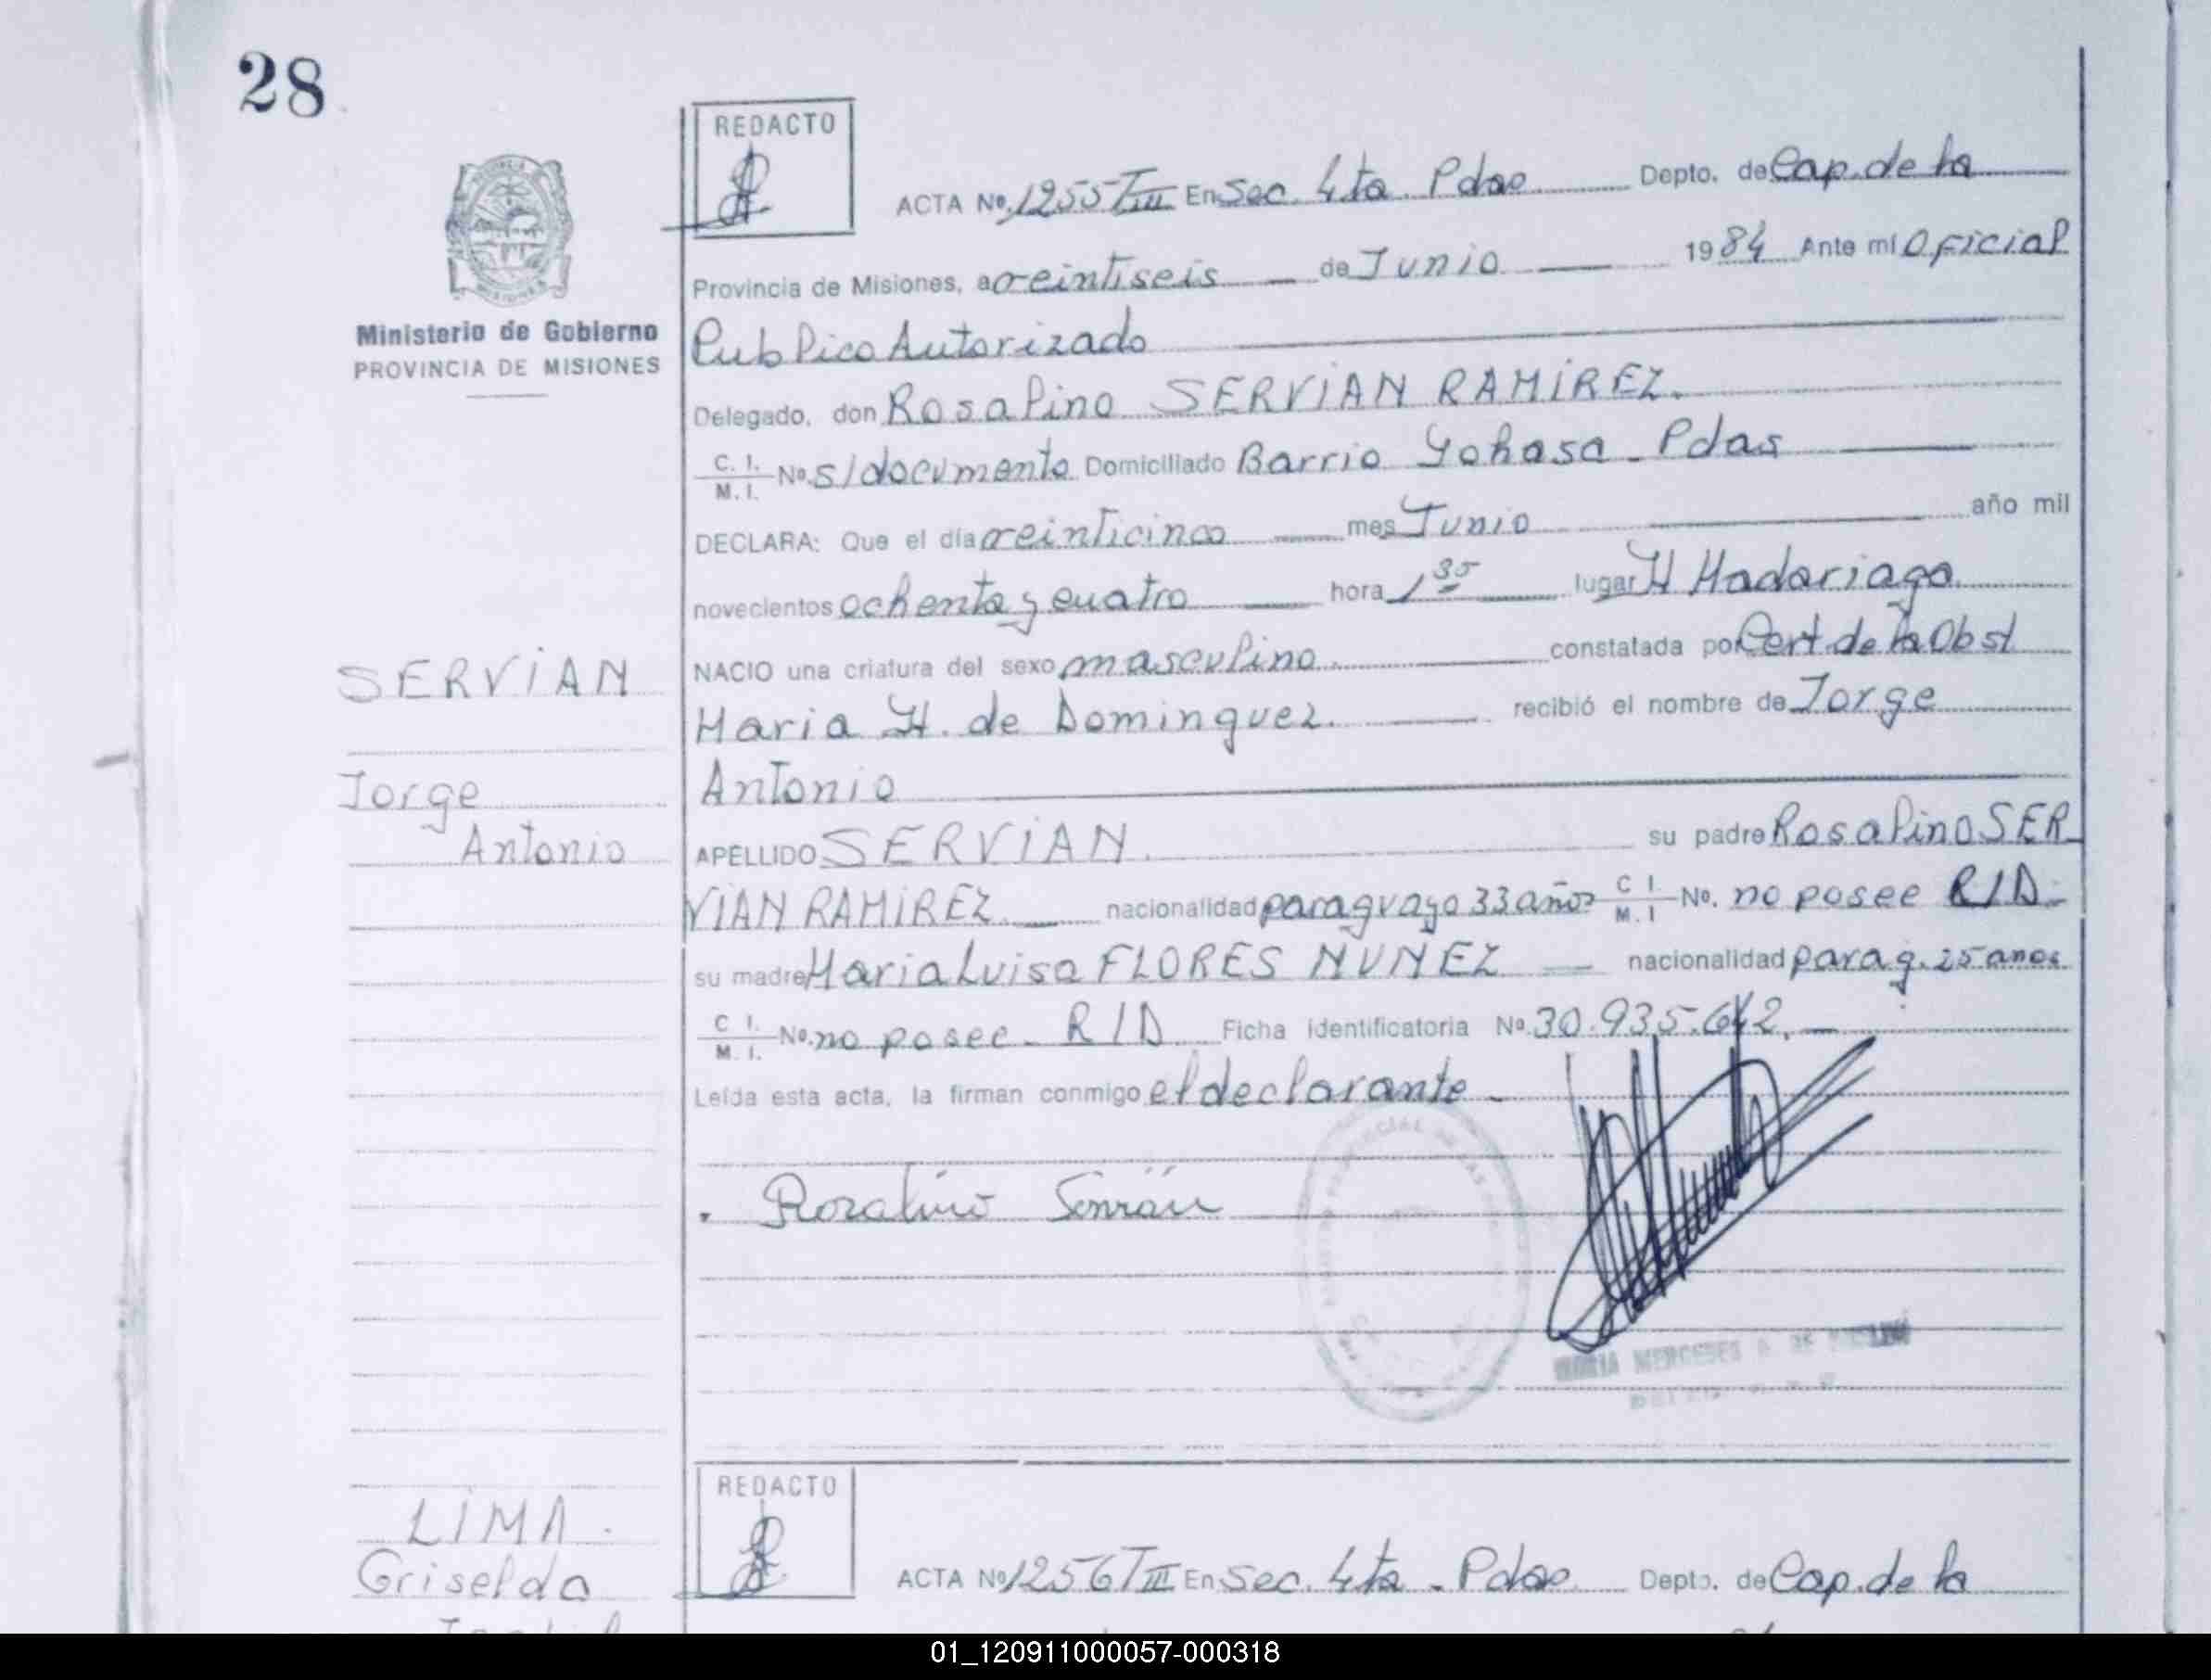 28
REDACTO
ACTA Nº 1255 T III En Sec. 4ta. Pdas Depto. de Cap. de la
Provincia de Misiones, a veintiseis de Junio 1984 Ante mí Oficial
Publico Autorizado
Ministerio de Gobierno
PROVINCIA DE MISIONES
Delegado, don Rosalino SERViAN RAMiREZ.
C. I. M. I. Nº s/documento Domiciliado Barrio Yohasa - Pdas
DECLARA: Que el día veinticinco mes Junio año mil
novecientos ochenta y cuatro hora 1 35 lugar H Madariaga
NACIO una criatura del sexo masculino constatada por Cert. de la Obst
Maria H. de Dominguez. recibió el nombre de Jorge
Antonio
SERViAN
Jorge
Antonio
APELLIDO SERViAN. su padre Rosalino SER
ViAN RAMiREZ. nacionalidad paraguayo 33 años C I M. I Nº. no posee R/D.
su madre Maria Luisa FLORES NUNEZ nacionalidad parag. 25 anos
C I. M. I. Nº. no posee - R/D Ficha identificatoria Nº 30.935.642.
Leída esta acta, la firman conmigo el declarante -
Rozalino Servián
MARIA MERCEDES
LiMA.
Griselda
REDACTO
ACTA Nº 1256 T III En Sec. 4ta - Pdas Depto. de Cap. de la
01_120911000057-000318